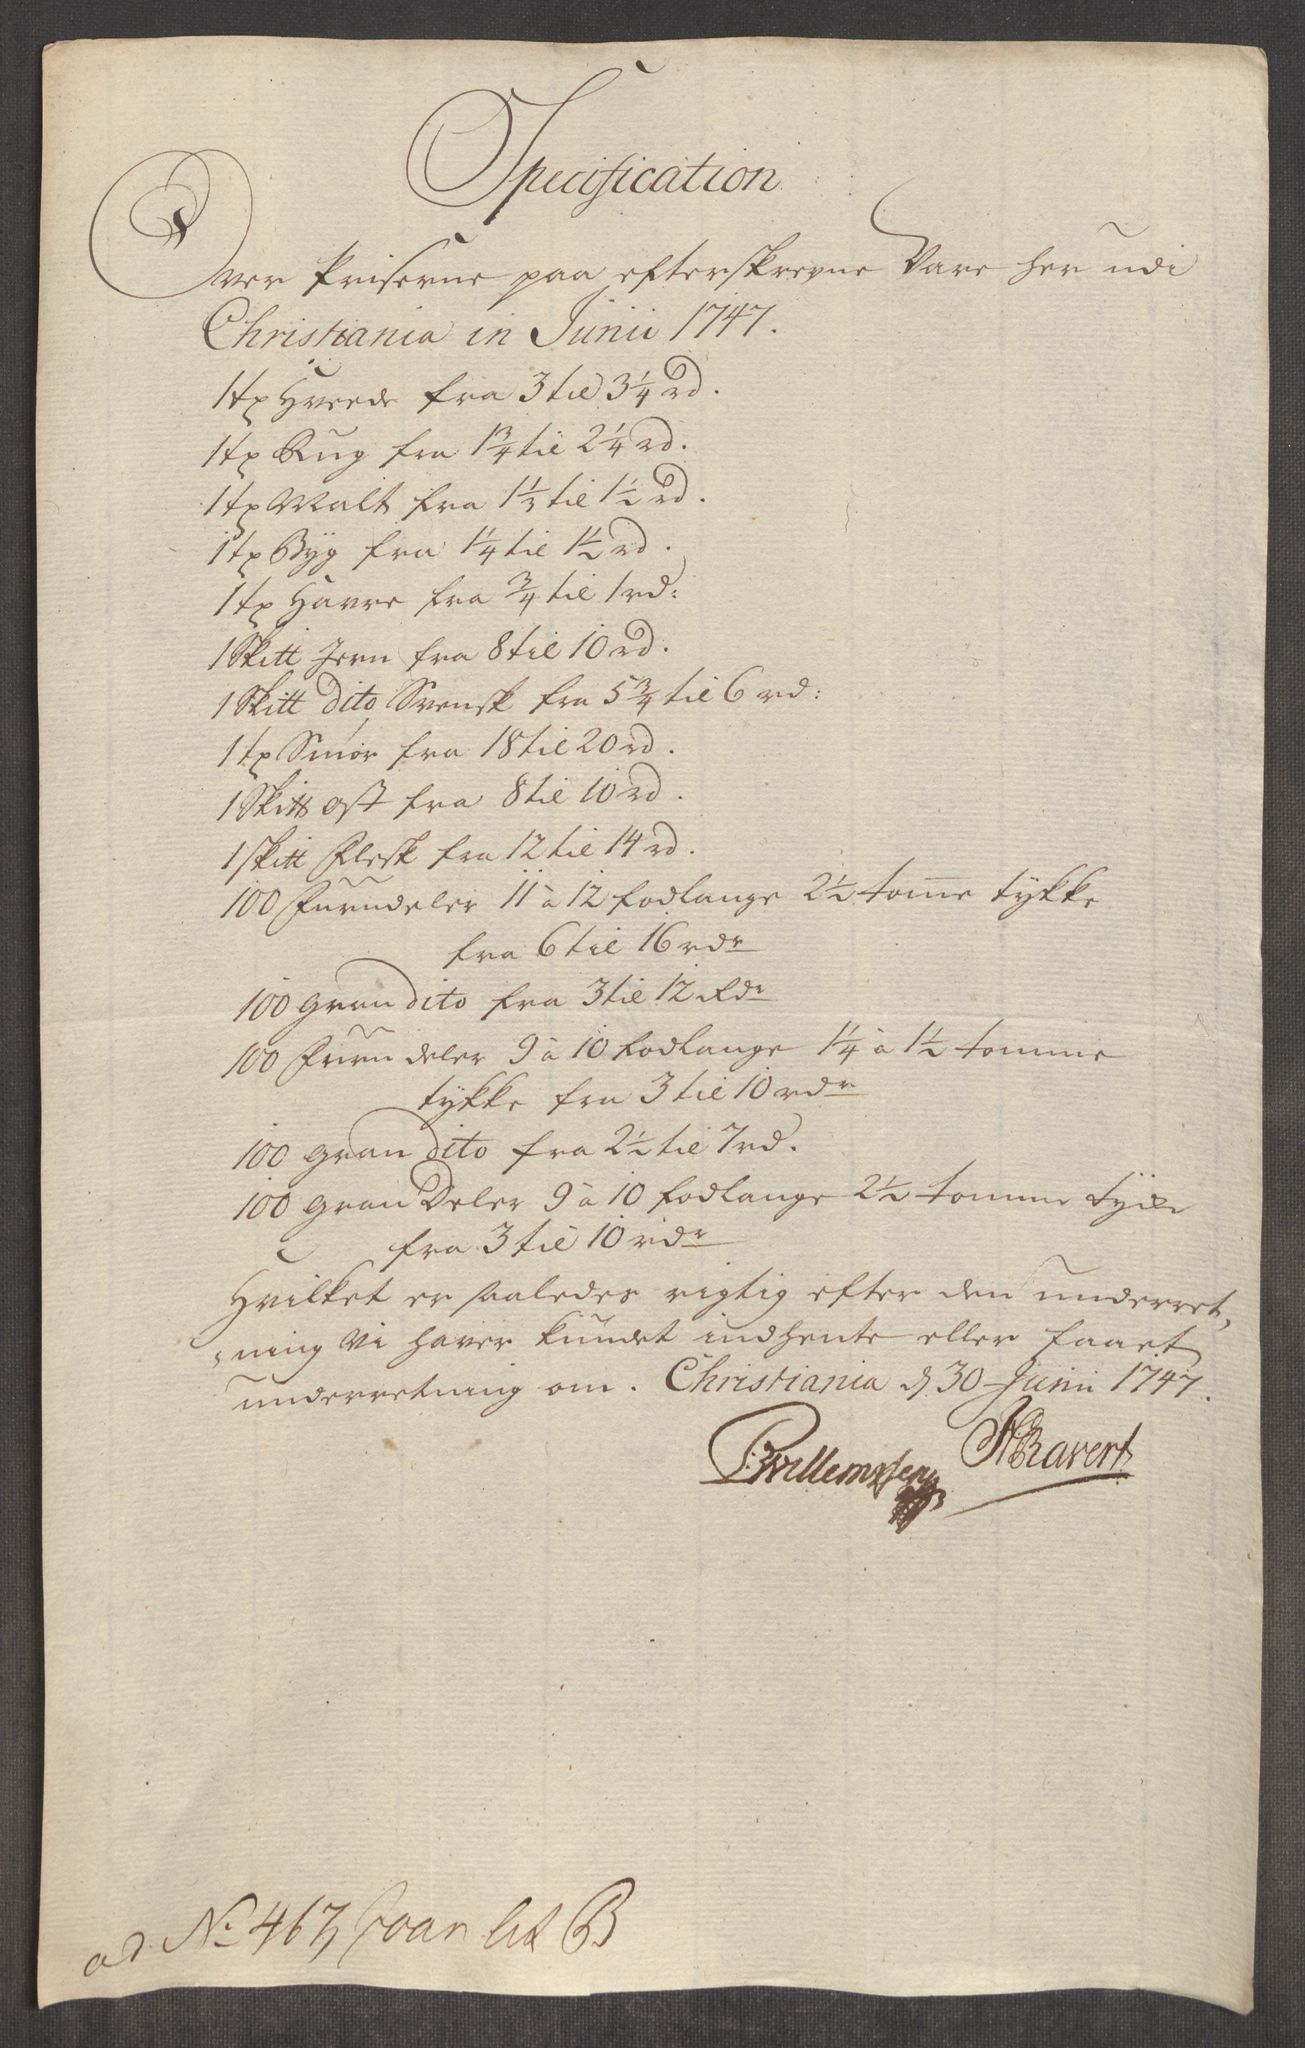 Specification
Over Priserne paa efterskrevne Vare her udi
Christiania in Junii 1747.
1 tr Hvede fra 3 til 3 1/4 rd.
1 tr Rug fra 1 3/4 til 2 1/4 rd.
1 tr Malt fra 1 1/3 til 1 1/2 rd.
1 tr Byg fra 1 1/4 til 1 1/2 rd.
1 tr Havre fra 3/4 til 1 rd:
1 Skitt Jern fra 8 til 10 rd.
1 Skitt dito Svensk fra 5 3/4 til 6 rd:
1 tr Smør fra 18 til 20 rd.
1 Skitt Ost fra 8 til 10 rd.
1 skitt Flesk fra 12 til 14 rd.
100 Furudeler 11 à 12 fodlange 2 1/2 tom̅e tykke
fra 6 til 16 rdr
100 gran dito fra 3 til 12 Rdr
100 Furu deler 9 à 10 fodlange 1 1/4 à 1 1/2 tomme
tykke fra 3 til 10 rdr
100 gran dito fra 2 1/2 til 7 rd.
100 gran Deler 9 à 10 fodlange 2 1/2 tomme
fra 3 til 10 rdr
Hvilket er saaledes rigtig efter den underret,
,ning Vi haver kundet indhente eller faaet
underretning om. Christiania d 30 Junii 1747.
Willemssen Ravert
ad No 467 lit B